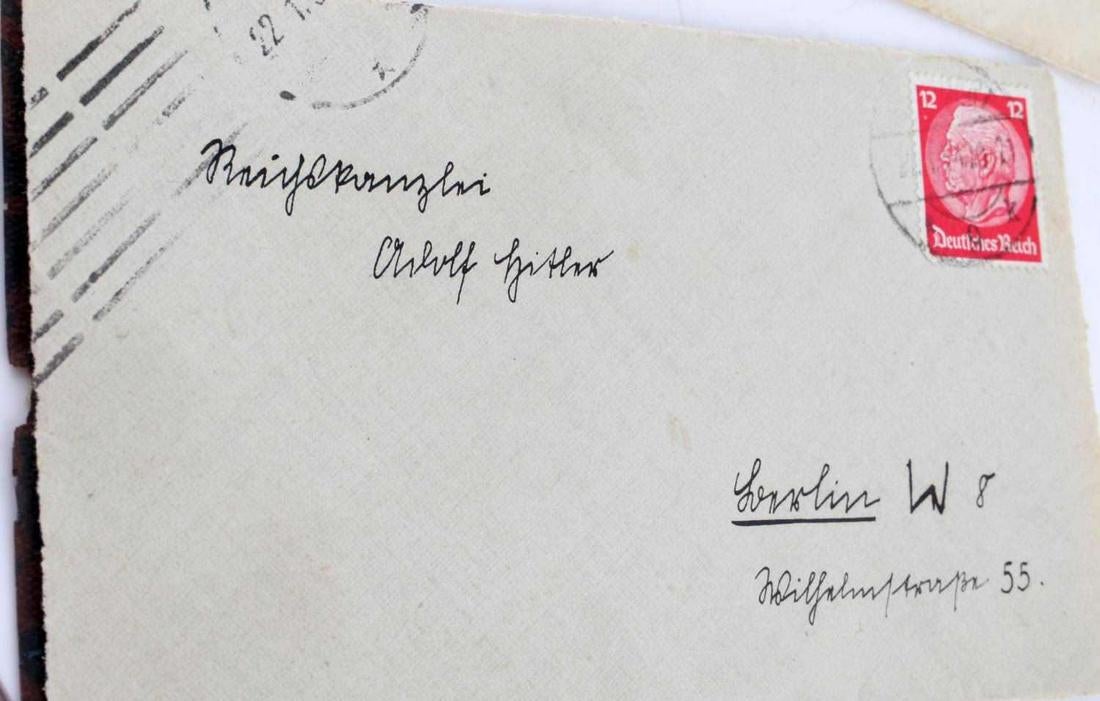 22.1.
12 12
Deutsches Reich
Reichskanzlei
Adolf Hitler
Berlin W 8
Wilhelmstraße 55.